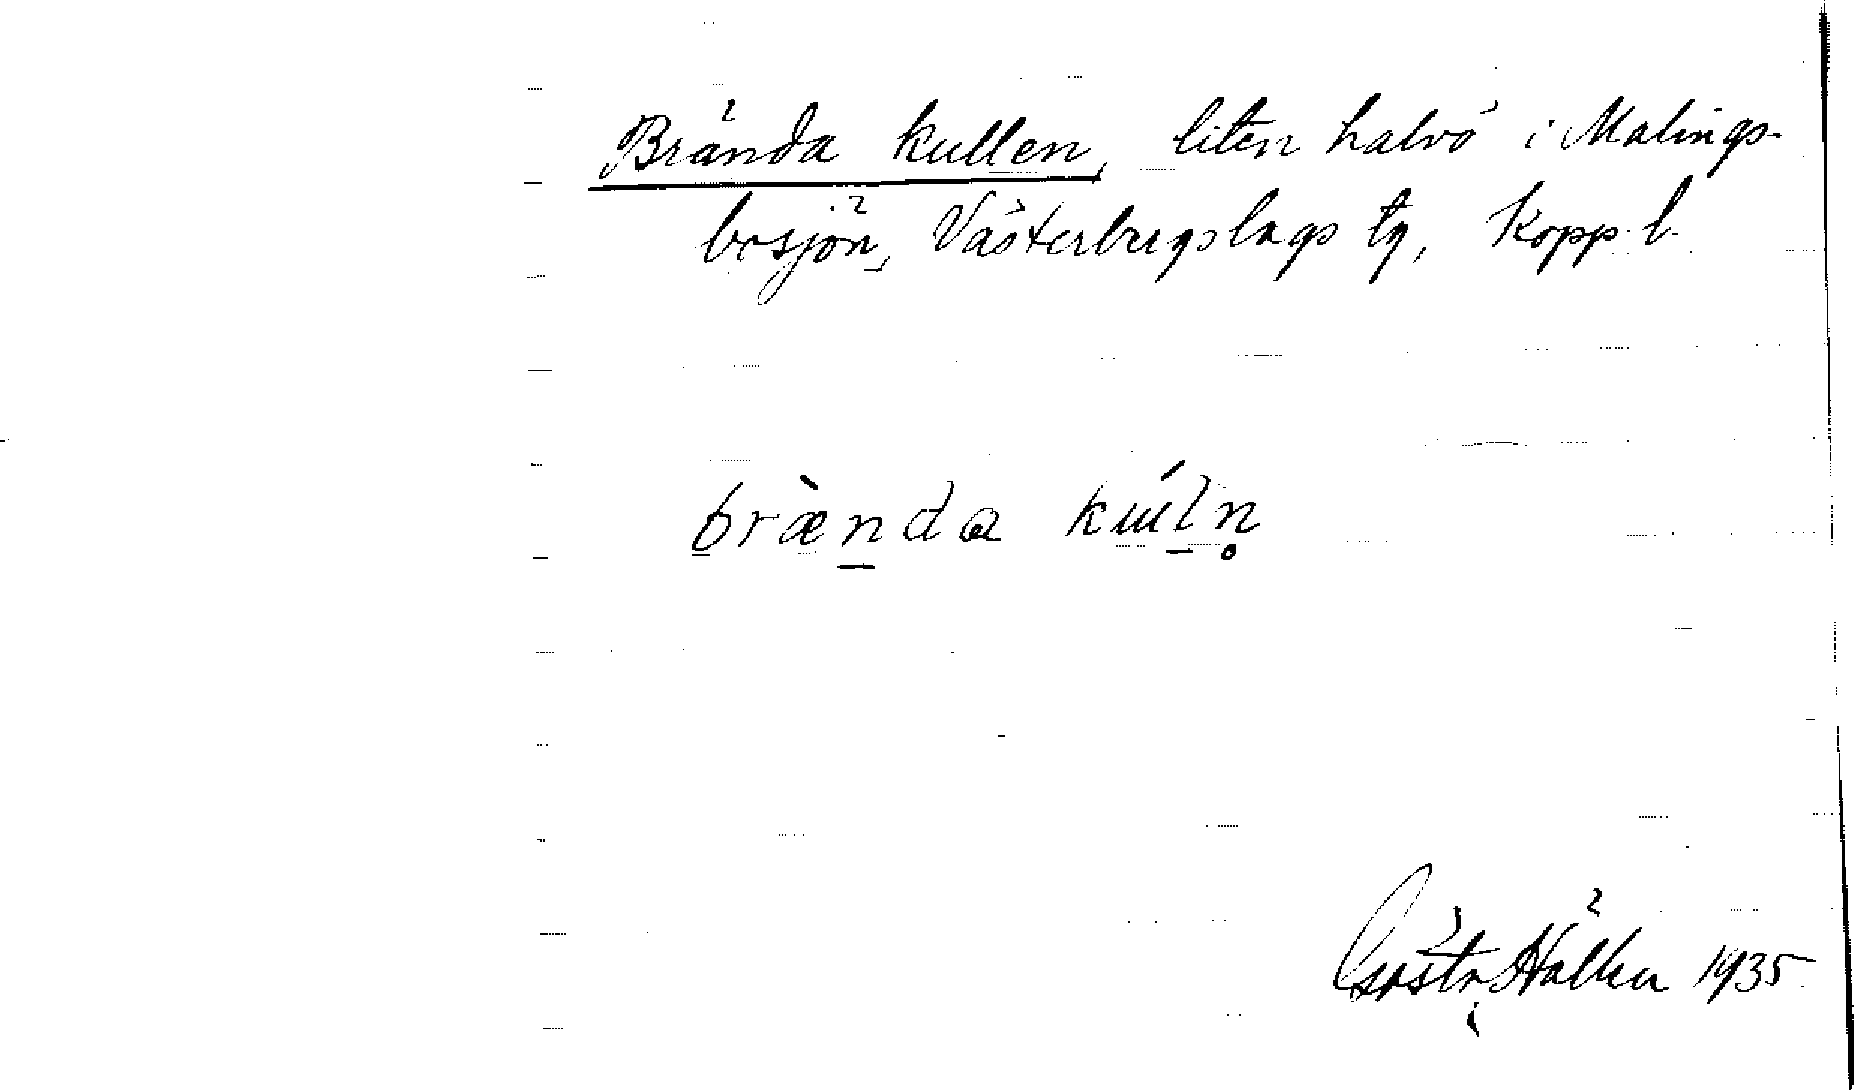 Brända kullen, liten halvö i Malings-
bosjön, Västerbergslags tg, Kopp. l.
bræ̀nda kúln̥
Gösta Häller 1935